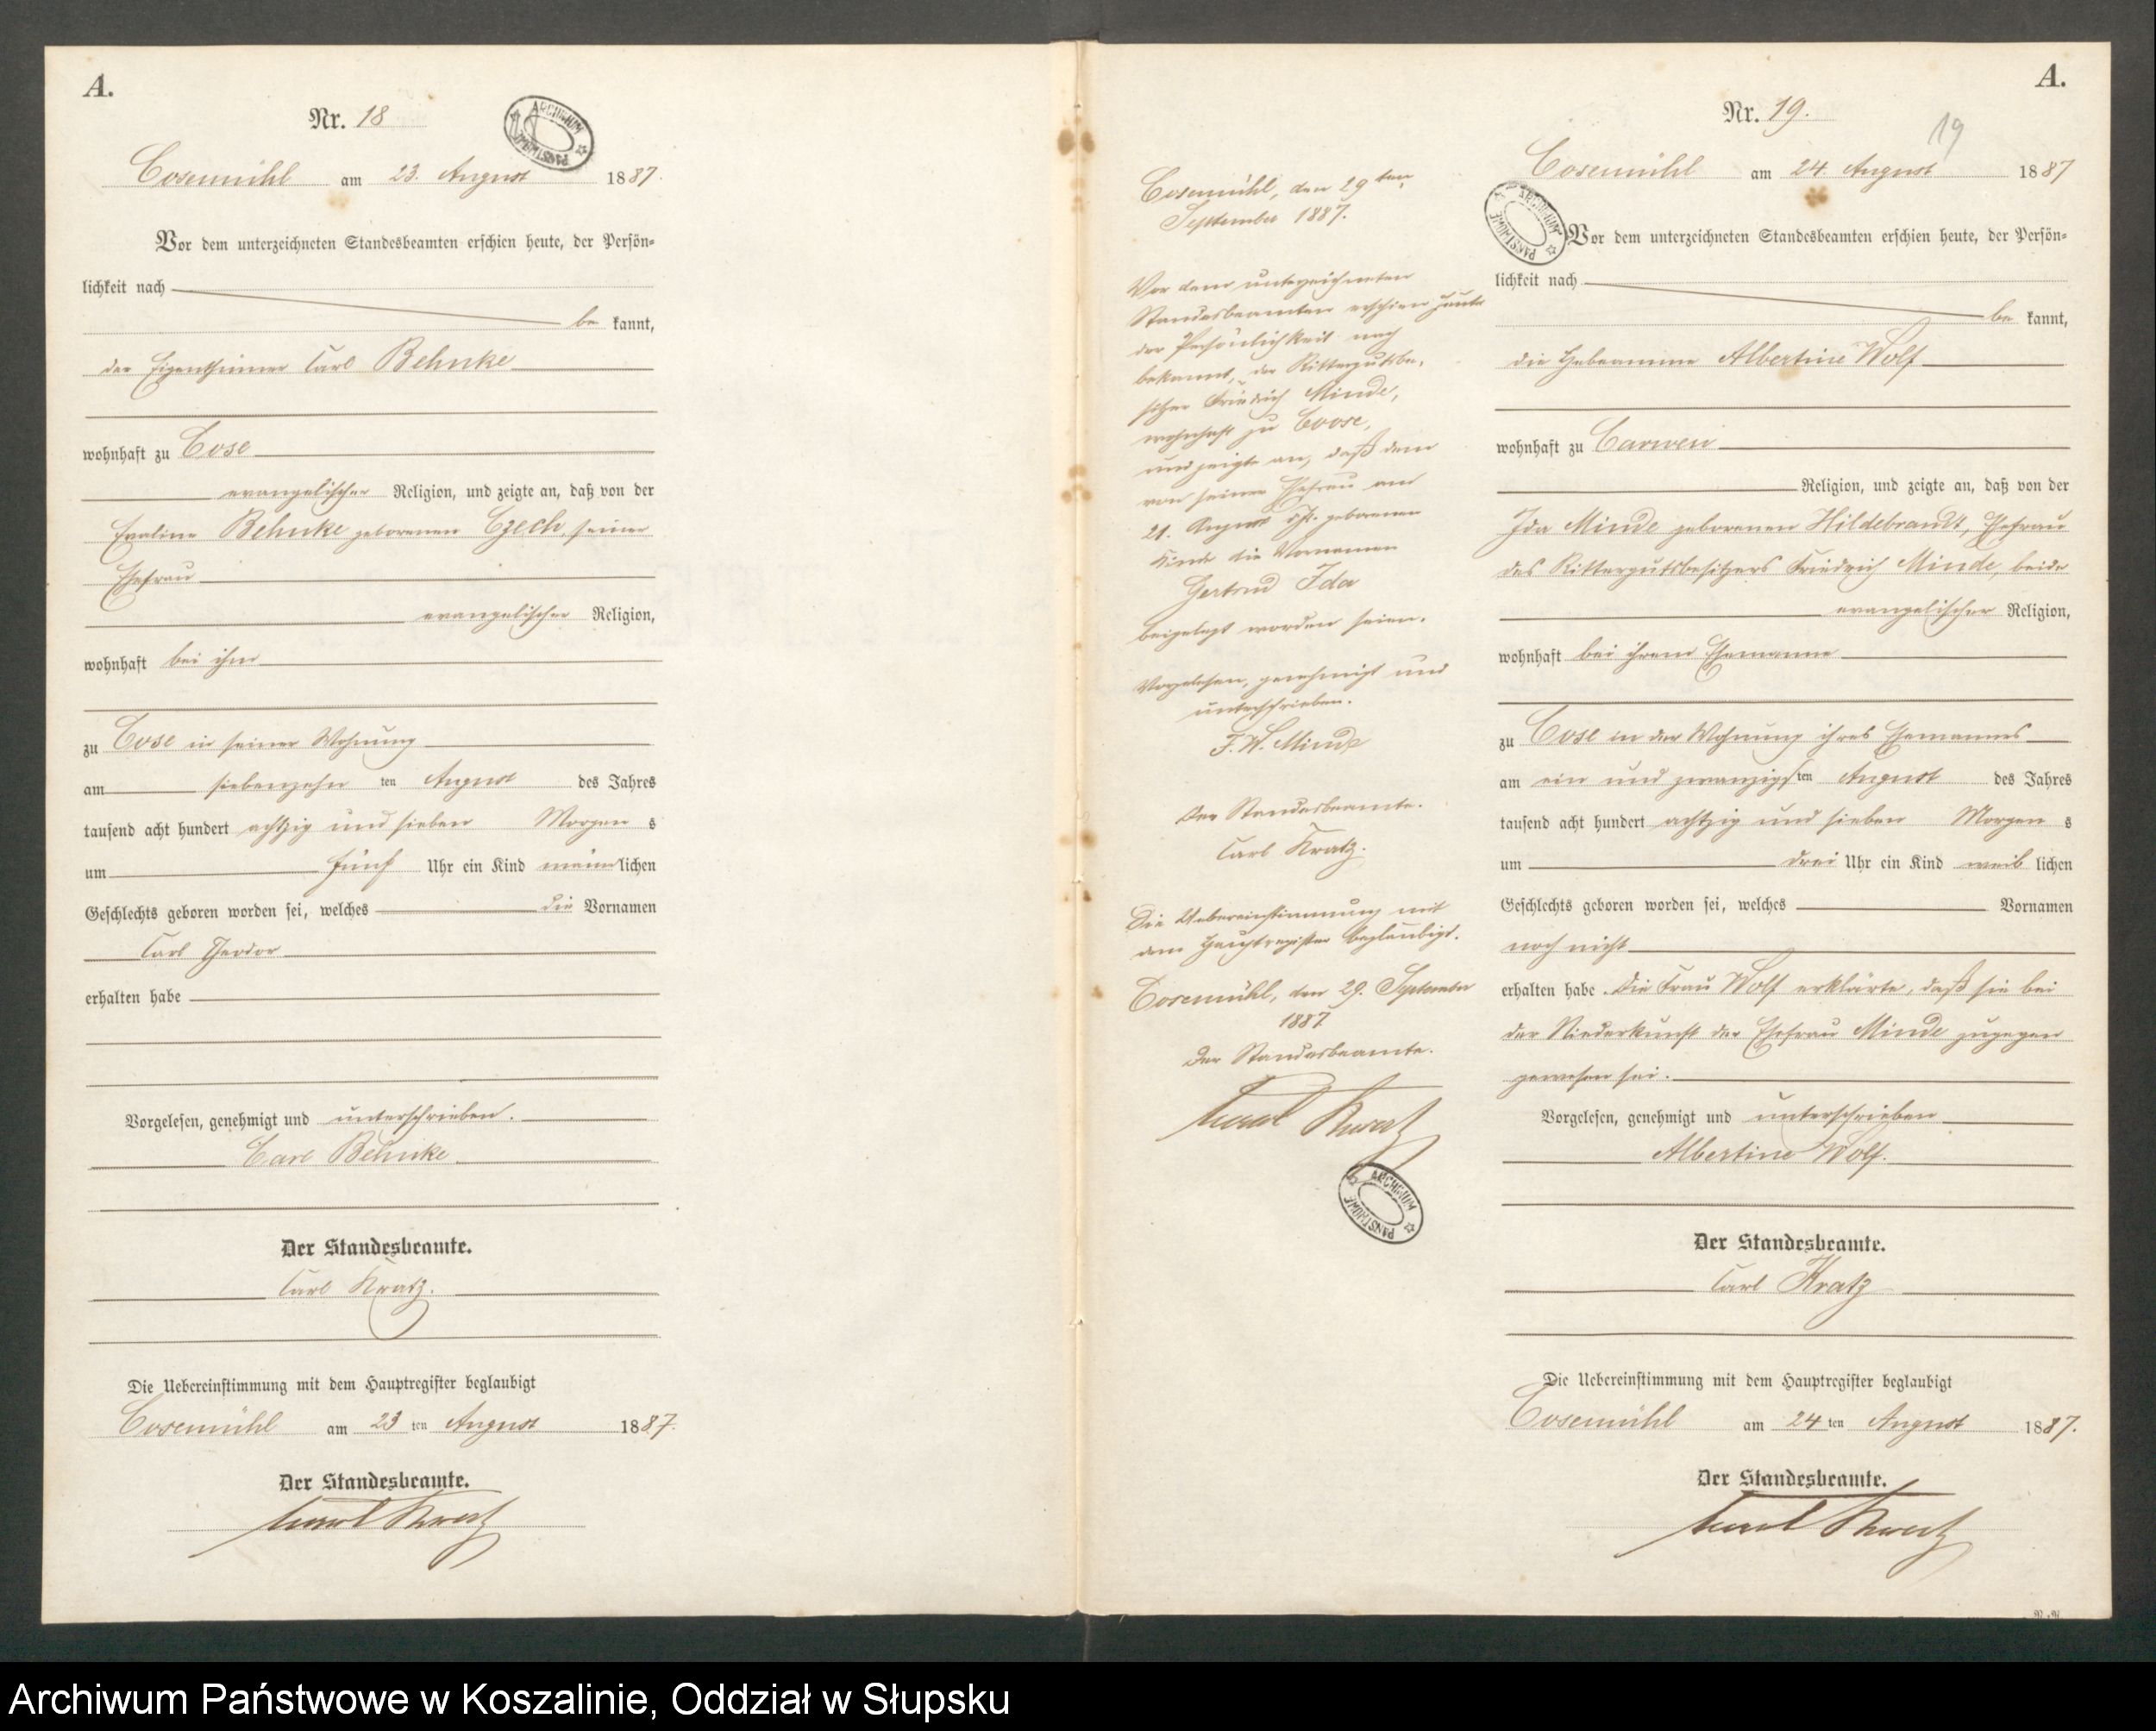 A.
Nr. 18
ARCHIWUM PAŃSTWOWE
Cosemühl am 23. August 1887.
Vor dem unterzeichneten Standesbeamten erschien heute, der Persön-
lichkeit nach
be kannt,
der Eigenthümer Carl Behnke
wohnhaft zu Cose
evangelischer Religion, und zeigte an, daß von der
Behnke geborenen Czech, seiner
Ehefrau
evangelischer Religion,
wohnhaft bei ihm
zu Cose in seiner Wohnung
am siebenzehn ten August des Jahres
tausend acht hundert achtzig und sieben Morgen s
um fünf Uhr ein Kind männlichen
Geschlechts geboren worden sei, welches die Vornamen
Carl Theodor
erhalten habe
Vorgelesen, genehmigt und unterschrieben.
Carl Behnke
Der Standesbeamte.
Carl Kratz.
Die Uebereinstimmung mit dem Hauptregister beglaubigt
Cosemühl am 23 ten August 1887.
Der Standesbeamte.
Carl Kratz
Cosemühl, den 29ten
September 1887.
Vor dem unterzeichneten
Standesbeamten erschien heute
der Persönlichkeit nach
bekannt, der Rittergutsbe-
sitzer Friedrich Minde,
wohnhaft zu Coose,
und zeigte an, daß dem
von seiner Ehefrau am
21. August geborenen
Kinde die Vornamen
Gertrud Ida
beigelegt worden seien.
Vorgelesen, genehmigt und
unterschrieben.
F. W. Minde
Der Standesbeamte.
Carl Kratz.
Die Uebereinstimmung mit
dem Hauptregister beglaubigt.
Cosemühl, den 29. September
1887
Der Standesbeamte.
Carl Kratz
ARCHIWUM PAŃSTWOWE
A.
Nr. 19.
19
Cosemühl am 24. August 1887
ARCHIWUM PAŃSTWOWE
Vor dem unterzeichneten Standesbeamten erschien heute, der Persön-
lichkeit nach
be kannt,
die Hebeamme Albertine Wolf
wohnhaft zu Carwen
Religion, und zeigte an, daß von der
Ida Minde geborenen Hildebrandt, Ehefrau
des Rittergutsbesitzers Friedrich Minde, beide
evangelischer Religion,
wohnhaft bei ihrem Ehemanne
zu Cose in der Wohnung ihres Ehemannes
am ein und zwanzigsten August des Jahres
tausend acht hundert achtzig und sieben Morgen s
um drei Uhr ein Kind weib lichen
Geschlechts geboren worden sei, welches Vornamen
noch nicht
erhalten habe. Die Frau Wolf erklärte, daß sie bei
der Niederkunft der Ehefrau Minde zugegen
gewesen sei.
Vorgelesen, genehmigt und unterschrieben
Albertine Wolf.
Der Standesbeamte.
Carl Kratz
Die Uebereinstimmung mit dem Hauptregister beglaubigt
Cosemühl am 24 ten August 1887.
Der Standesbeamte.
Carl Kratz
Archiwum Państwowe w Koszalinie, Oddział w Słupsku